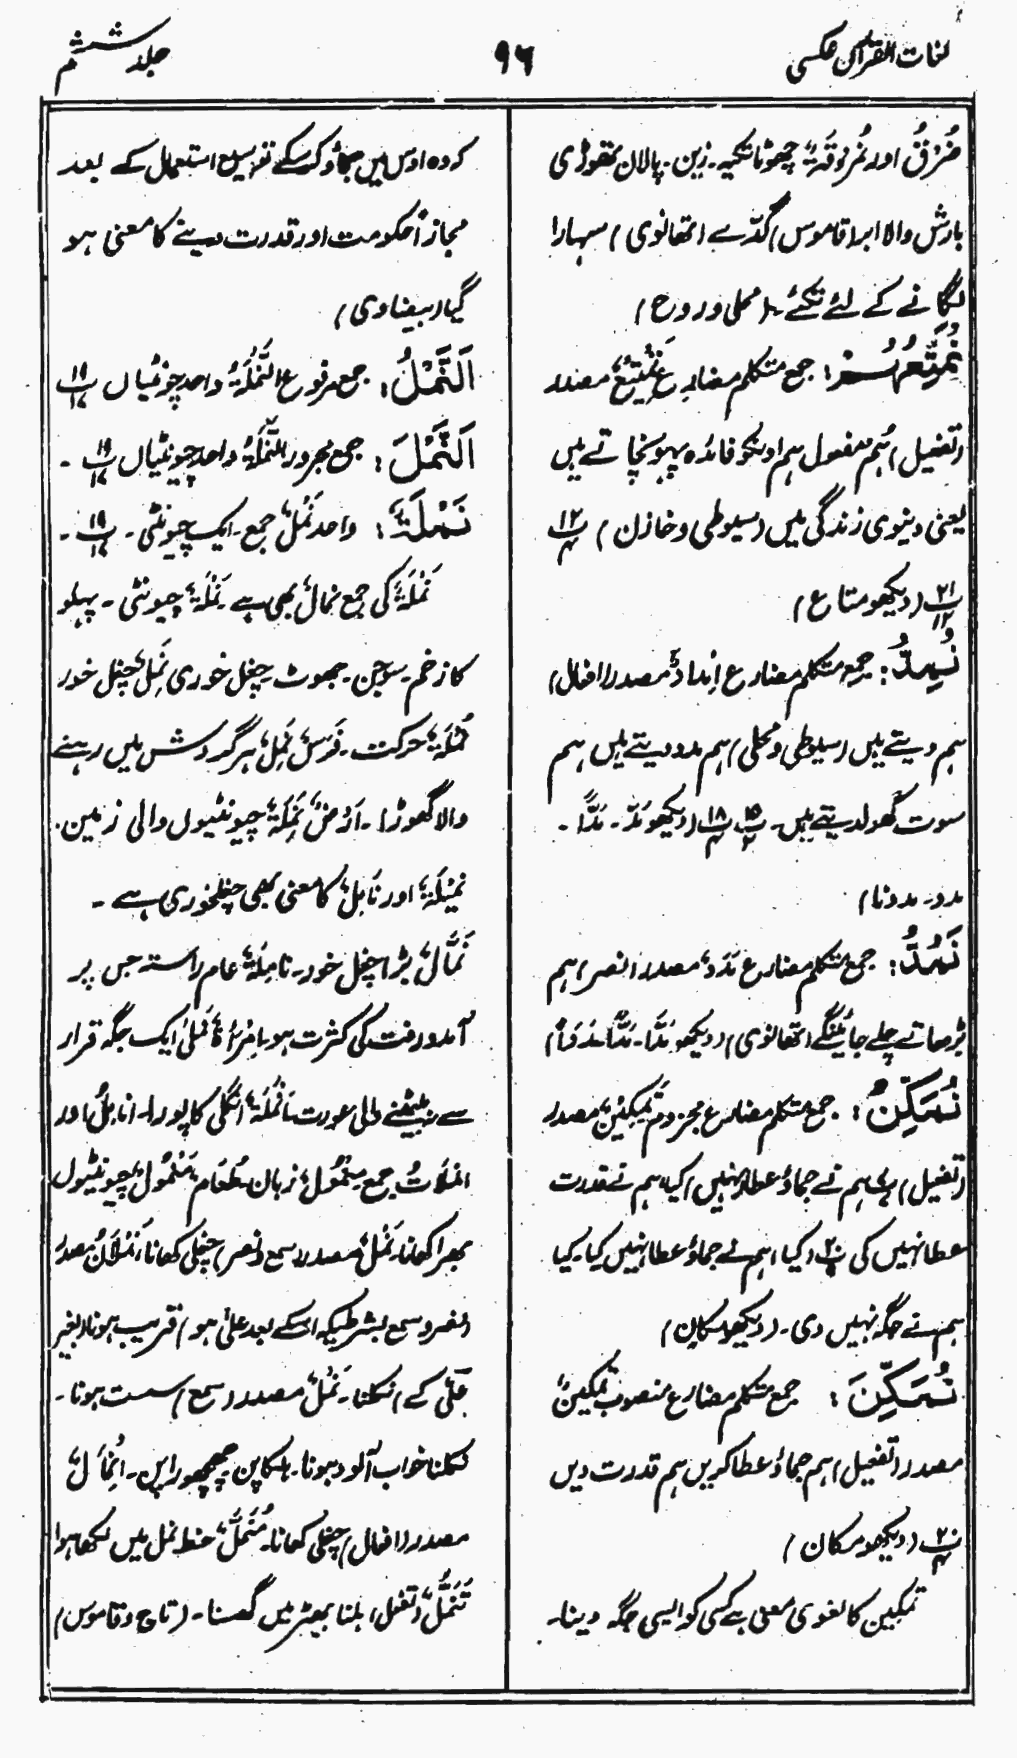 لغات القرآن عکسی
۹۶
جلد ششم
نُمْرُقٌ اور نُمْرُوقَةٌ چھوٹا تکیہ۔ زین۔ پالان تھوڑی
بارش والا ابر (قاموس) گدّے (تھانوی) سہارا
لگانے کے لئے تکئے۔ (محلی و روح)
نُمَتِّعُهُمْ: جمع متکلم مضارع تَمْتِیْعٌ مصدر
(تفعیل) هُمْ مفعول ہم اونکو فائدہ پہونچاتے ہیں
یعنی دنیوی زندگی میں (سیوطی و خازن)
(دیکھو متاع)
نُمِدُّ: جمع متکلم مضارع اِمْدَادٌ مصدر (افعال)
ہم دیتے ہیں (سیوطی و محلی) ہم مدد دیتے ہیں ہم
سوت گھولدیتے ہیں۔ پ ۱۵/۲ پ ۱۸/۴ (دیکھو مَدَّ۔ مَدًّا۔
مدد۔ مددنا)
نَمُدُّ: جمع متکلم مضارع مَدَدٌ مصدر (نصر) ہم
بڑھاتے چلے جائینگے (تھانوی) (دیکھو مَدَّا۔ مَدًّا مَدَدًا)
نُمَكِّنْ: جمع متکلم مضارع مجزوم تَمْکِیْنٌ مصدر
(تفعیل) ہم نے جماؤ عطا نہیں کیا، ہم نے قدرت
عطا نہیں کی (کیا) ہم نے جماؤ عطا نہیں کیا۔ کیا
ہم نے جگہ نہیں دی۔ (دیکھو مکان)
نُمَكِّنَ: جمع متکلم مضارع منصوب تَمْکِیْنٌ
مصدر (تفعیل) ہم جماؤ عطا کریں ہم قدرت دیں
پ ۲۰/۴ (دیکھو مکان)
تمکین کا لغوی معنی ہے کسی کو ایسی جگہ دینا۔
کہ وہ اوس میں جماؤ کرسکے توسیع استعمال کے بعد
مجازاً حکومت اور قدرت دینے کا معنی ہو
گیا (بیضاوی)
اَلنَّمْلُ: جمع مرفوع النَّمْلَةُ واحد چونٹیاں پ ۱۹/۱۷
اَلنَّمْلِ: جمع مجرور النَّمْلَةُ واحد چونٹیاں پ ۱۹/۱۷۔
نَمْلَةٌ: واحد نَمْلٌ جمع۔ ایک چونٹی۔ پ ۱۹/۱۷۔
نَمْلَةٌ کی جمع نِمَالٌ بھی ہے۔ نَمْلَةٌ چیونٹی۔ پہلو
کا زخم۔ سوجن۔ جھوٹ۔ چغل خوری نَمِلٌ چغل خور
نُمْلَةٌ حرکت۔ فَرَسٌ نَمِلٌ ہر گھڑی گردش میں رہنے
والا گھوڑا۔ اَرْضٌ نَمِلَةٌ چیونٹیوں والی زمین۔
نَمِیْلَةٌ اور نَامِلٌ کا معنی بھی چغلخوری ہے۔
نَمَّالٌ بڑا چغل خور۔ نَامِلَةٌ عام راستہ جس پر
آمدورفت کی کثرت ہو۔ اِمْرَأَةٌ نَمْلٰی ایک جگہ قرار
سے نہ بیٹھنے والی عورت۔ اَنْمُلَةٌ انگلی کا پورا۔ اَنَامِلُ اور
اَنْمُلَاتٌ جمع مِنْمُوْلٌ زبان۔ طَعَامٌ مَنْمُوْلٌ چونٹیوں
بھرا کھانا۔ نَمْلٌ مصدر (سمع و نصر) چغلی کھانا، نَمْلَانٌ مصدر
(نصر و سمع بشرطیکہ اسکے بعد علیٰ ہو) قریب ہونا (بغیر
علیٰ کے) نکلنا۔ نَمْلٌ مصدر (سمع) سست ہونا۔
نکلنا خواب آلود ہونا۔ ہلکا پن۔ چھچھورا پن۔ اِنْمَالٌ
مصدر (افعال) چغلی کھانا۔ مُنَمَّلٌ خط نمل میں لکھا ہوا
تَنَمُّلٌ (تفعل) ہلنا بھیڑ میں گھسنا۔ (تاج و قاموس)